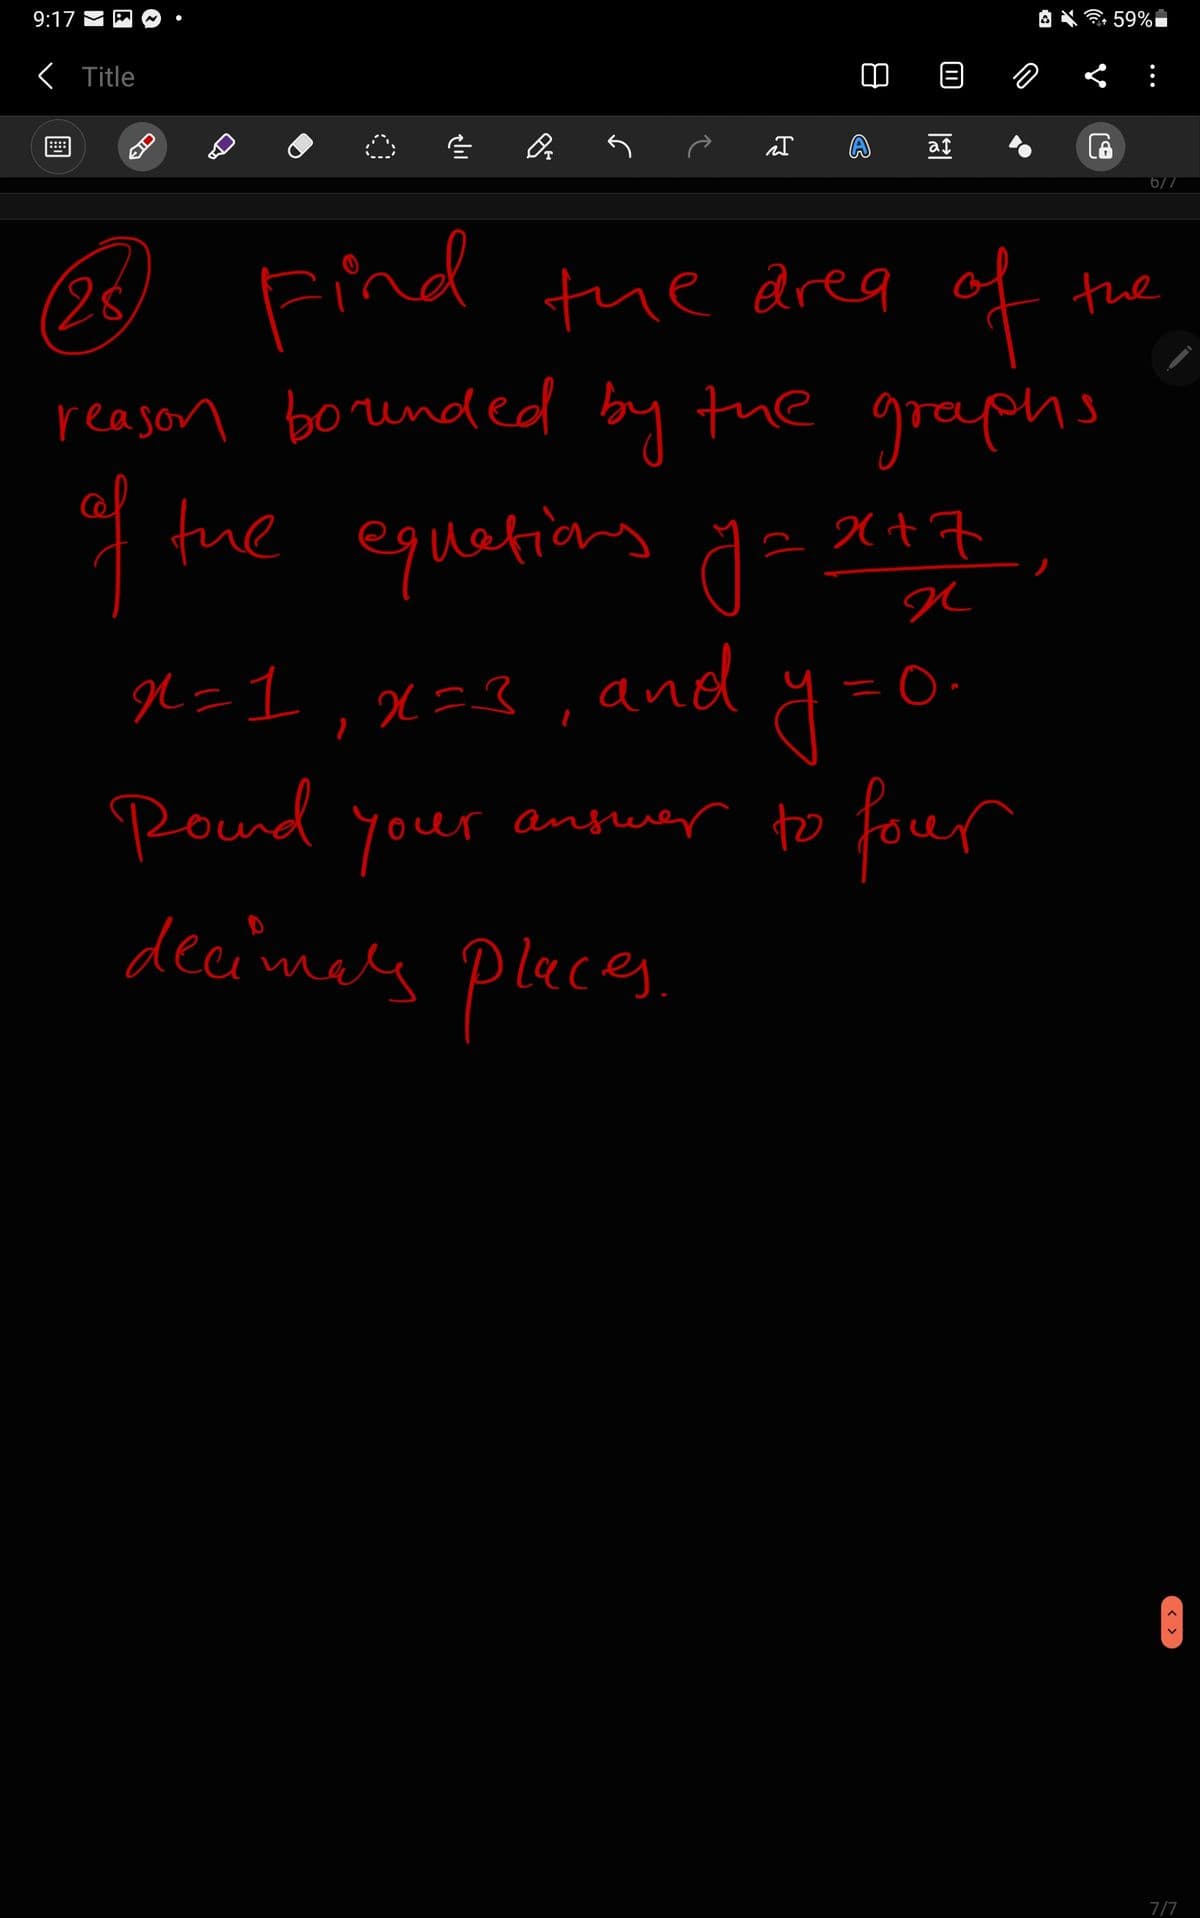 9:17 59%
Title
6/7
28 Find the area of the
reason bounded by the graphs
of the equations y = x+7/x,
x=1, x=3, and y=0.
Round your answer to four
decimals places.
7/7